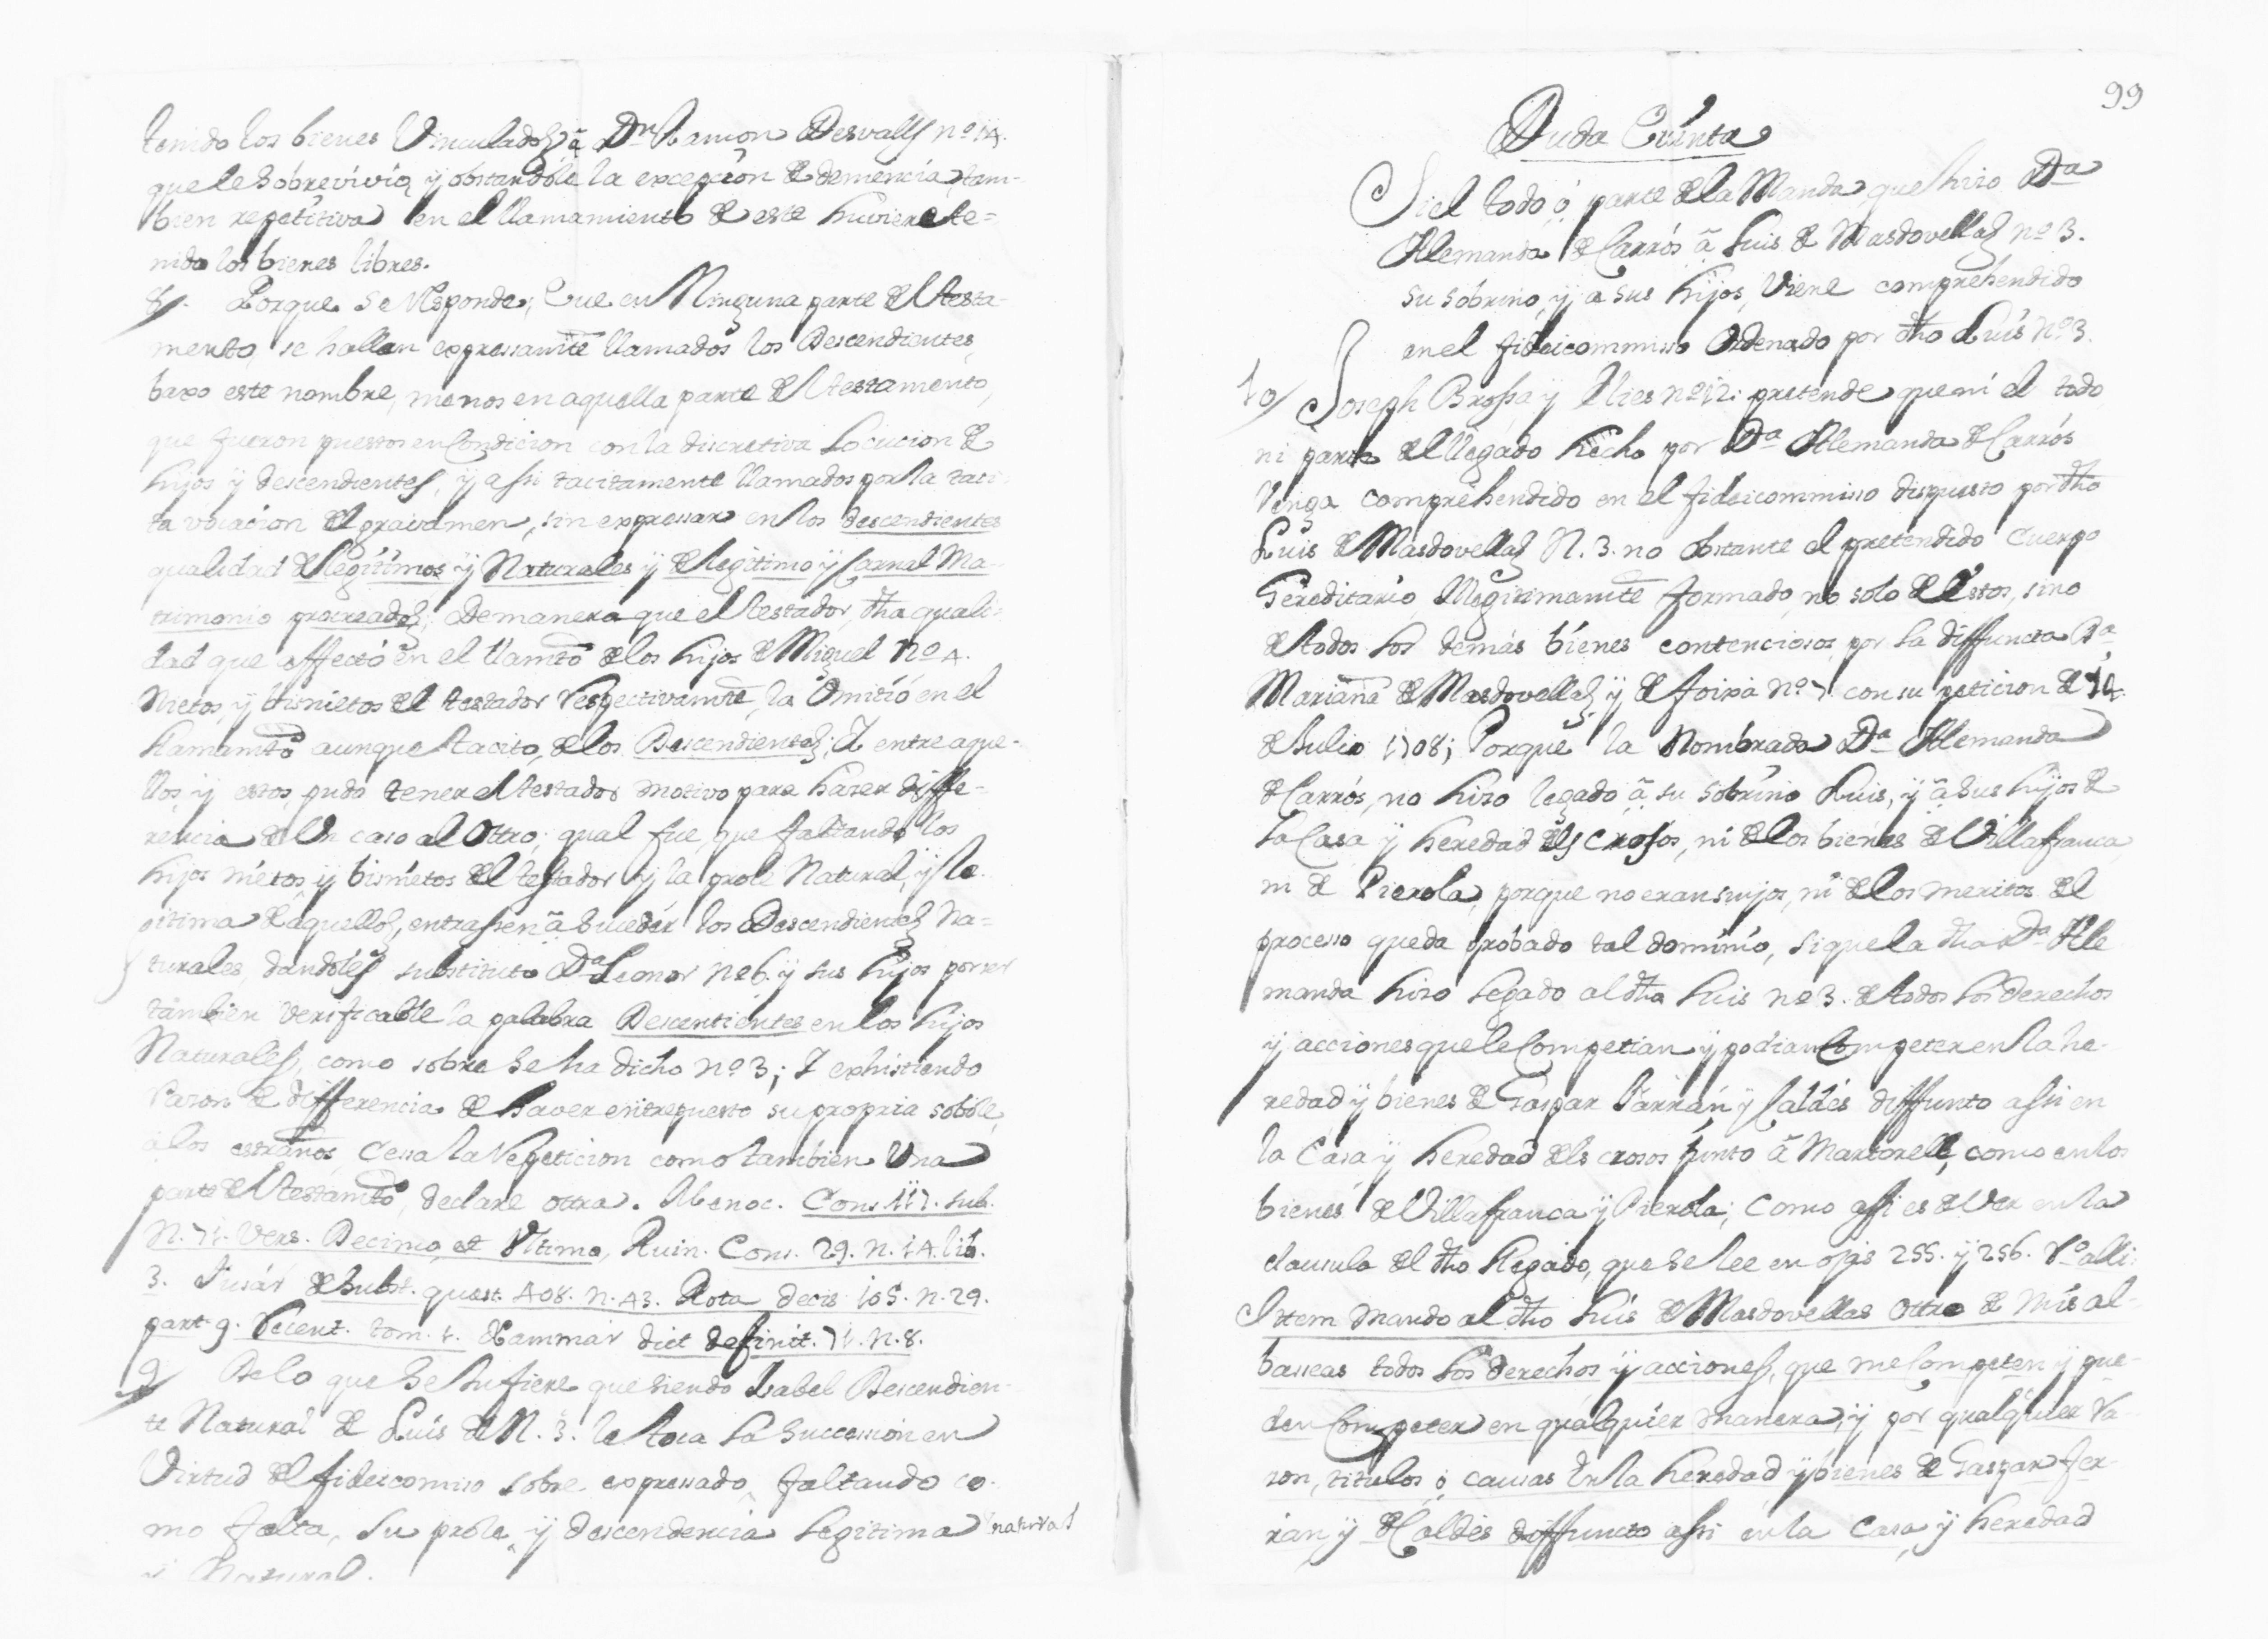 tenido los bienes Vinculados â Dn. Ramon Desvalls nº 14.
que le Sobrevivió, y obstandole la excepcion de demencia, tam-
bien repetitiva en el llamamiento de este huviere te=
nido los bienes libres.
8/. Porque se Responde, Que en Ninguna parte del testa-
mento, se hallan expressamte llamados los Descendientes,
baxo este nombre, menos en aquella parte del testamento,
que fueron puestos en Condicion con la discretiva Locucion de
hijos y descendientes, y assi tacitamente llamados por la taci-
ta vocacion del gravamen, sin expressar en los descendientes
qualidad de legitimos y Naturales y de legitimo y Carnal Ma-
trimonio procreados; Demanera que el testador, dha quali-
dad que affectó en el llamto de los hijos de Miguel Nº 4.
Nietos, y bisnietos del testador Respectivamte, la Omitió en el
llamamto aunque tacito, de los Descendientes; Y entre aque-
llos, y estos pudo tener el testador motivo para hazer diffe-
rencia de Un caso al Ottro, qual fue, que faltando los
hijos nietos, y bisnietos del testador y la prole Natural, y le-
gitima de aquellos, entrassen â Succedér los Descendientes Na=
turales, dandoles substituto Da Leonor nº 6. y sus hijos por ser
tambien verificable la palabra Descentientes en los hijos
Naturales, como sobre se ha dicho nº 3; Y exhistiendo
Razon de differencia de haver entrepuesto su propria sobole,
a los estraños, Cessa la Repeticion como tambien Una
parte del testamto, declare ottra. Menoc. Cons. 117. sub.
N. 71. Vers. Decimo, et Ultimo, Ruin. Cons. 29. n. 14. lib.
3. Fusár de Subst. quæst. 408. n. 43. Rota decis 105. n. 29.
part. 9. Recent. tom. 1. Xammár dict definit. 71. n. 8.
9/ De lo que Se Infiere que siendo Isabel Descendien-
te Natural de Luis del N. 3. le toca la Succession en
Virtud del fideicomiso sobre expressado, faltando co-
mo falta, su prole, y descendencia Legitima natural
y Natural.
99
Duda Quinta
Si el todo, ó parte de la Manda, que hizo Da
Alemanda de Carrós â Luis de Masdovellas nº 3.
su sobrino, y a sus hijos, Viene comprehendido
en el fideicommisso Ordenado por dho Luis Nº 3.
10/ Joseph Brossa y Elies nº 12. pretende que ni el todo
ni parte del llegado hecho por Da Alemanda de Carrós
Venga comprehendido en el fideicommisso dispuesto por dho
Luis de Masdovellas N. 3. no obstante el pretendido Cuerpo
Hereditario, Illegitimamte formado, no solo de Estos, sino
de todos los demás bienes contenciosos por la diffuncta Da
Mariana de Masdovellas, y de foixá nº 7. con su peticion de 14.
de Julio 1708; Porque la Nombrada Da Alemanda
de Carrós, no hizo legado â su sobrino Luis, y â Sus hijos de
la Casa y heredad dels Crosos, ni de los bienes de Villafranca
ni de Pierola, porque no eran suyos, ni de los meritos del
processo queda probado tal dominio, si que la dha Da Ale
manda hizo legado al dho Luis nº 3. de todos los derechos
y acciones que le Competian y podian Competer en la he-
redad y bienes de Gaspar Parrán y Caldés diffunto assi en
la Casa y heredad dels crosos junto â Martorell, como en los
bienes de Villafranca y Pierola; como assi es de Ver en la
clausula del dho Llegado, que Se lee en ojas 255. y 256. Ro alli:
Ittem mando al dho Luis de Masdovellas Ottro de mis al-
basseas todos los derechos y acciones, que me Competen y pue-
den Competer en qualquier manera, y por qualquier ra-
zon, titulos, ó causas En la heredad y bienes de Gaspar fer-
ran y de Caldés diffuncto assi en la Casa, y heredad